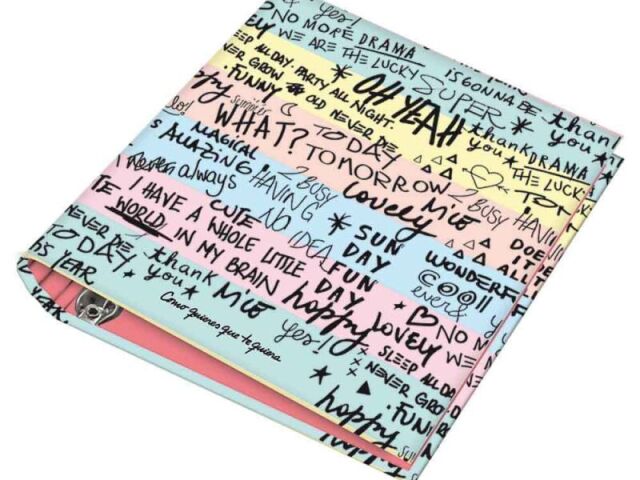 yes!
NO MORE DRAMA IS GONNA BE
WE ARE THE LUCKY SUPER thank
SLEEP ALL DAY. PARTY ALL NIGHT. OH YEAH thank you
NEVER GROW OLD NEVER DIE DRAMA
FUNNY THE LUCKY
happy summer TODAY
WHAT? TOMORROW 2 BUSY HAVING
MAGICAL lovely NICE
AMAZING 2 BUSY HAVING
always
I HAVE A WHOLE LITTLE CUTE NO IDEA SUN DAY WONDERF
WORLD IN MY BRAIN FUN DAY COOL
NEVER DIE happy LOVELY NO MO
TODAY thank you NICE yes! WE
YEAR SLEEP ALL DA
Como quieres que te quiera NEVER GRO
FUNN
happy